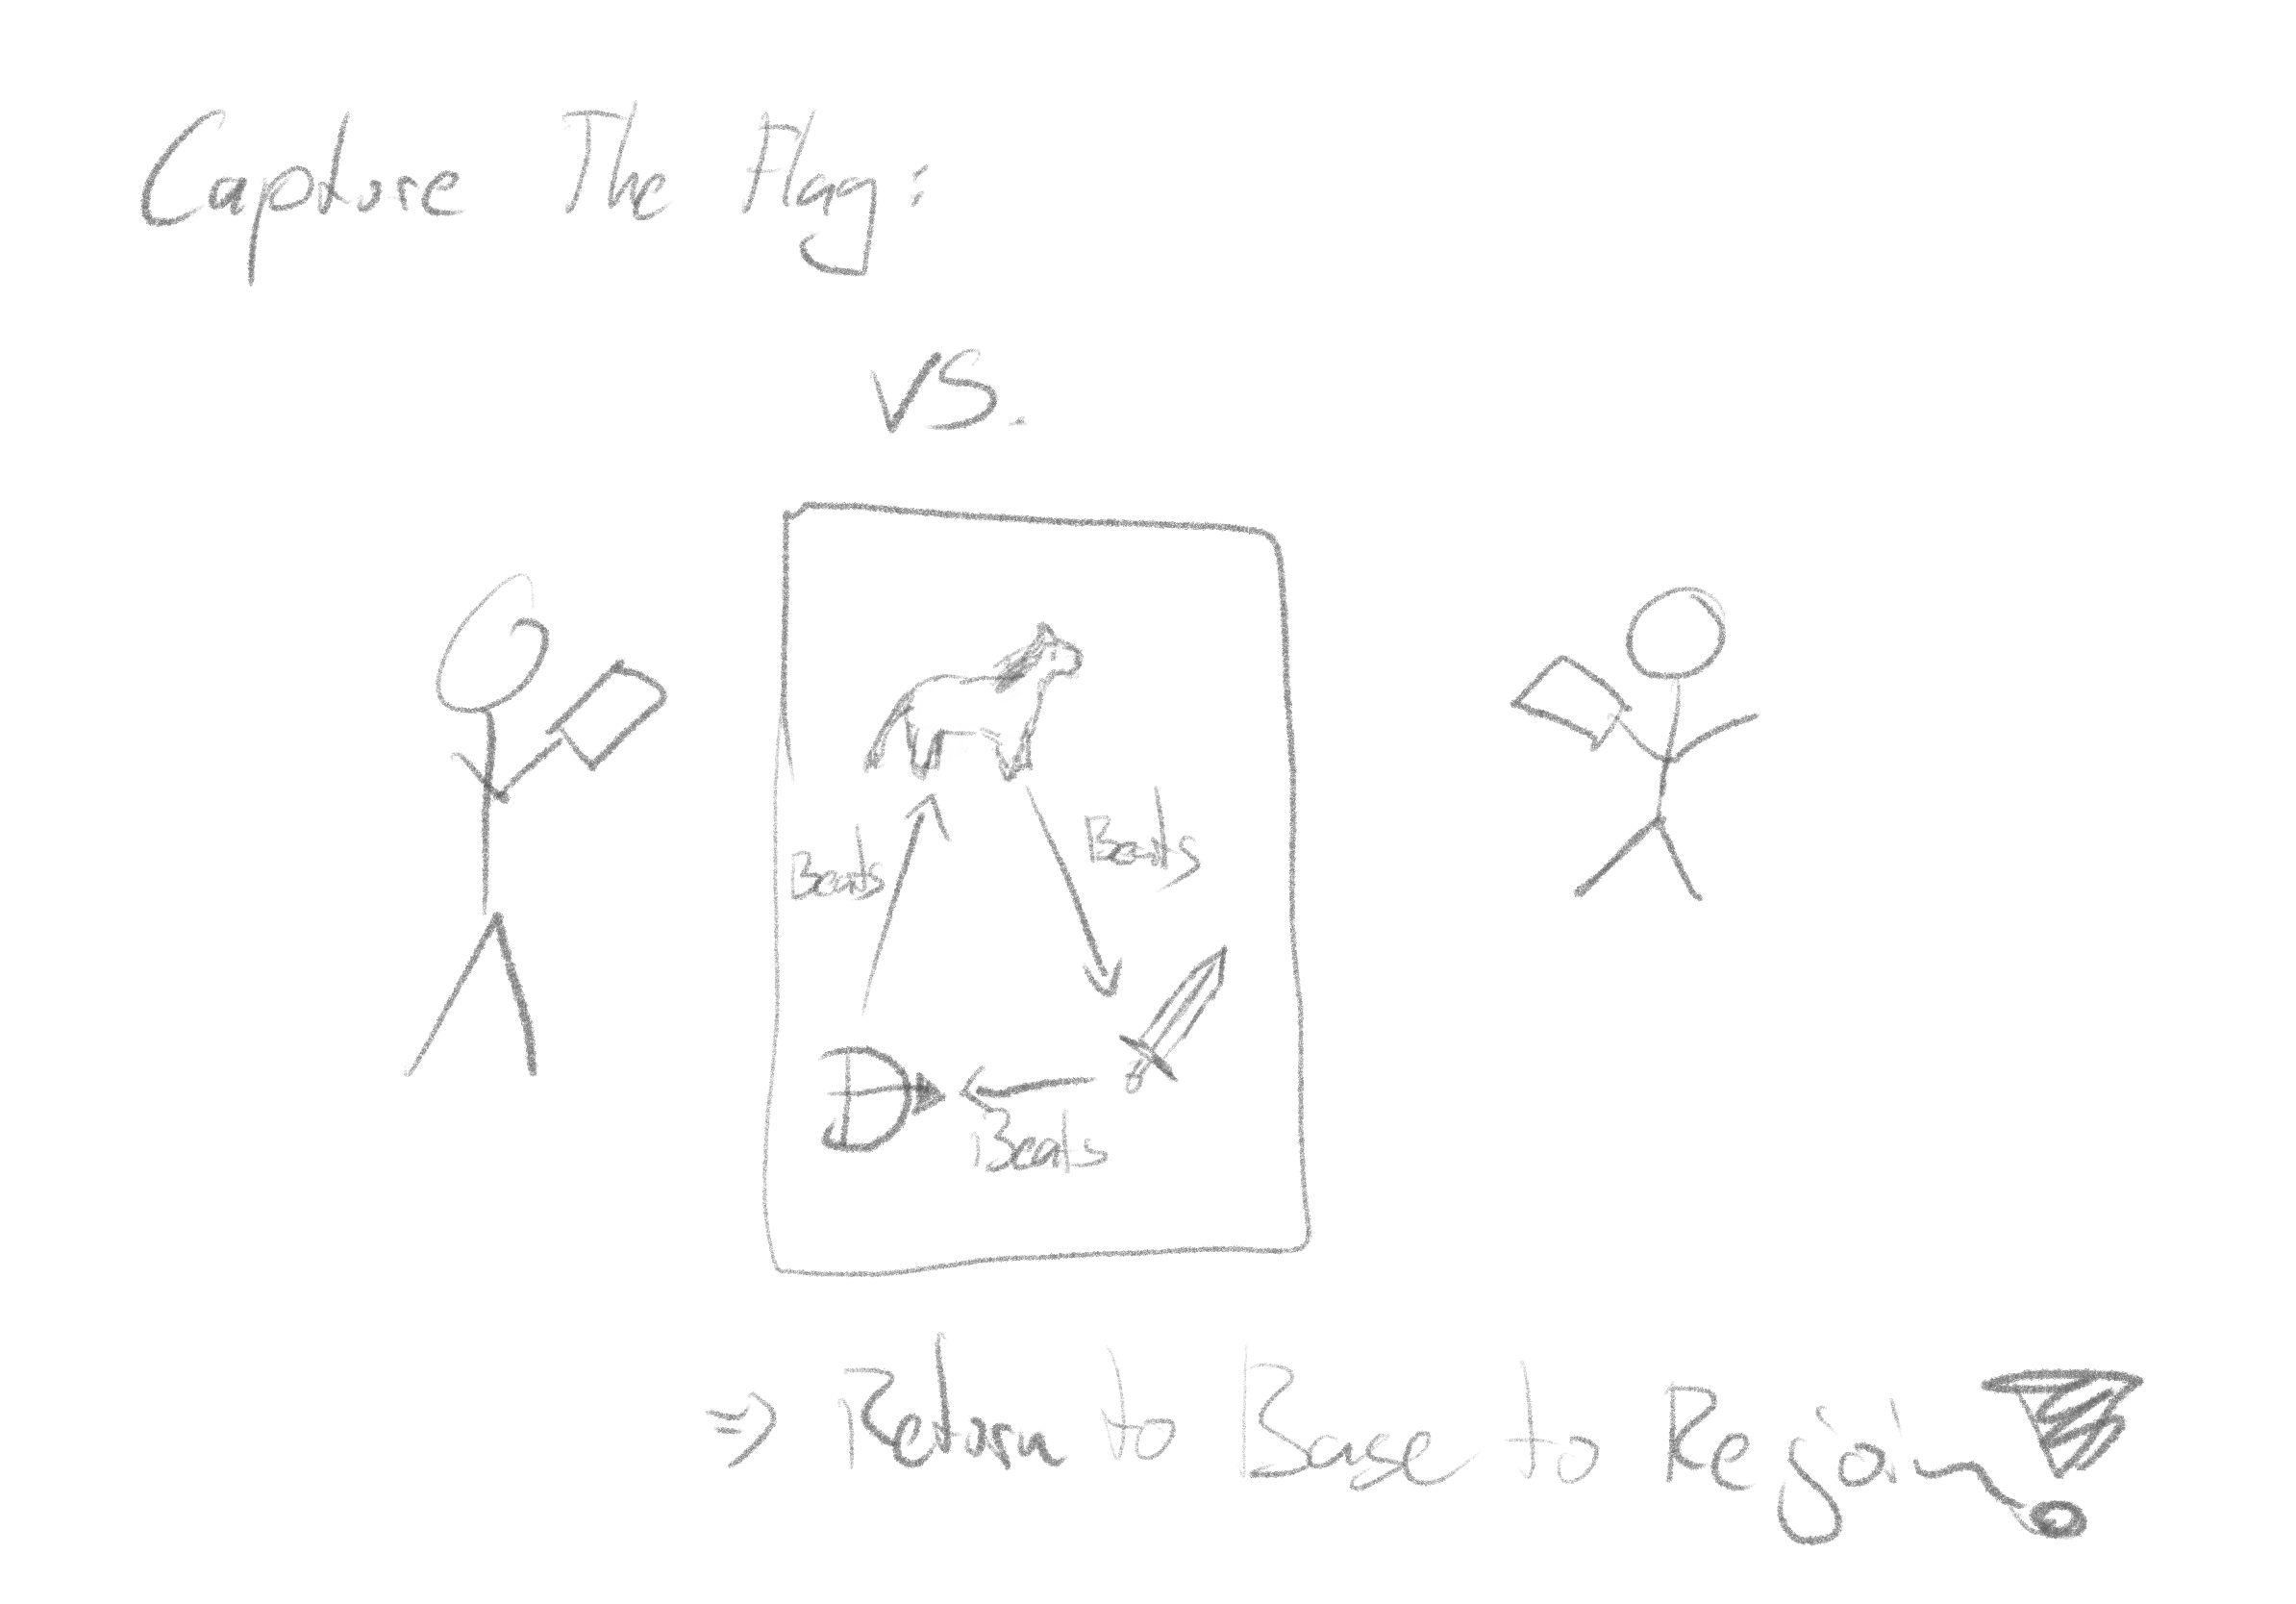 Capture The Flag:
VS.
Beats
Beats
Beats
⇒ Return to Base to Rejoin!